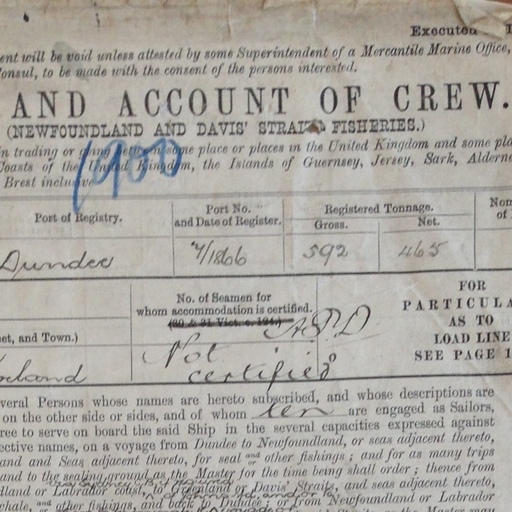 Executed
ent will be void unless attested by some Superintendent of a Mercantile Marine Office,
Consul, to be made with the consent of the persons interested.
AND ACCOUNT OF CREW.
(NEWFOUNDLAND AND DAVIS' STRAITS FISHERIES.)
in trading or some place or places in the United Kingdom and some pla
Coasts of the United Kingdom, the Islands of Guernsey, Jersey, Sark, Alderne
Brest inclusive
1900
Port of Registry.
Port No. and Date of Register.
Registered Tonnage.
Gross.
Net.
Nom
of
Dundee
7/1866
592
465
No. of Seamen for
whom accommodation is certified.
Not
certified
eet, and Town.)
FOR
PARTICULA
AS TO
LOAD LINE
SEE PAGE 1
veral Persons whose names are hereto subscribed, and whose descriptions are
on the other side or sides, and of whom ten are engaged as Sailors,
ree to serve on board the said Ship in the several capacities expressed against
ective names, on a voyage from Dundee to Newfoundland, or seas adjacent thereto,
and and Seas adjacent thereto, for seal and/or other fishings; and for as many trips
and to the sealing ground as the Master for the time being shall order; thence from
dland or Labrador coast, to Greenland or Davis' Straits, and seas adjacent thereto,
whale, and other fishings, and back to Dundee; or from Newfoundland or Labrador